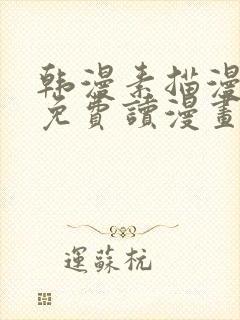 韩漫素描漫
免費讀漫畫
運蘇杭